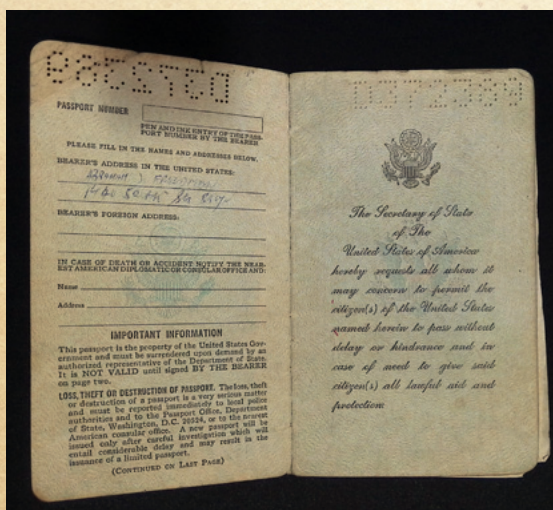 PASSPORT NUMBER
PEN AND INK ENTRY OF THE PASS-
PORT NUMBER BY THE BEARER
PLEASE FILL IN THE NAMES AND ADDRESSES BELOW.
BEARER'S ADDRESS IN THE UNITED STATES:
BEARER'S FOREIGN ADDRESS:
IN CASE OF DEATH OR ACCIDENT NOTIFY THE NEAR-
EST AMERICAN DIPLOMATIC OR CONSULAR OFFICE AND:
Name
Address
IMPORTANT INFORMATION
This passport is the property of the United States Gov-
ernment and must be surrendered upon demand by an
authorized representative of the Department of State.
It is NOT VALID until signed BY THE BEARER
on page two.
LOSS, THEFT OR DESTRUCTION OF PASSPORT. The loss, theft
or destruction of a passport is a very serious matter
and must be reported immediately to local police
authorities and to the Passport Office, Department
of State, Washington, D.C. 20524, or to the nearest
American consular office. A new passport will be
issued only after careful investigation which will
entail considerable delay and may result in the
issuance of a limited passport.
(CONTINUED ON LAST PAGE)
The Secretary of State
of The
United States of America
hereby requests all whom it
may concern to permit the
citizen(s) of the United States
named herein to pass without
delay or hindrance and in
case of need to give said
citizen(s) all lawful aid and
protection